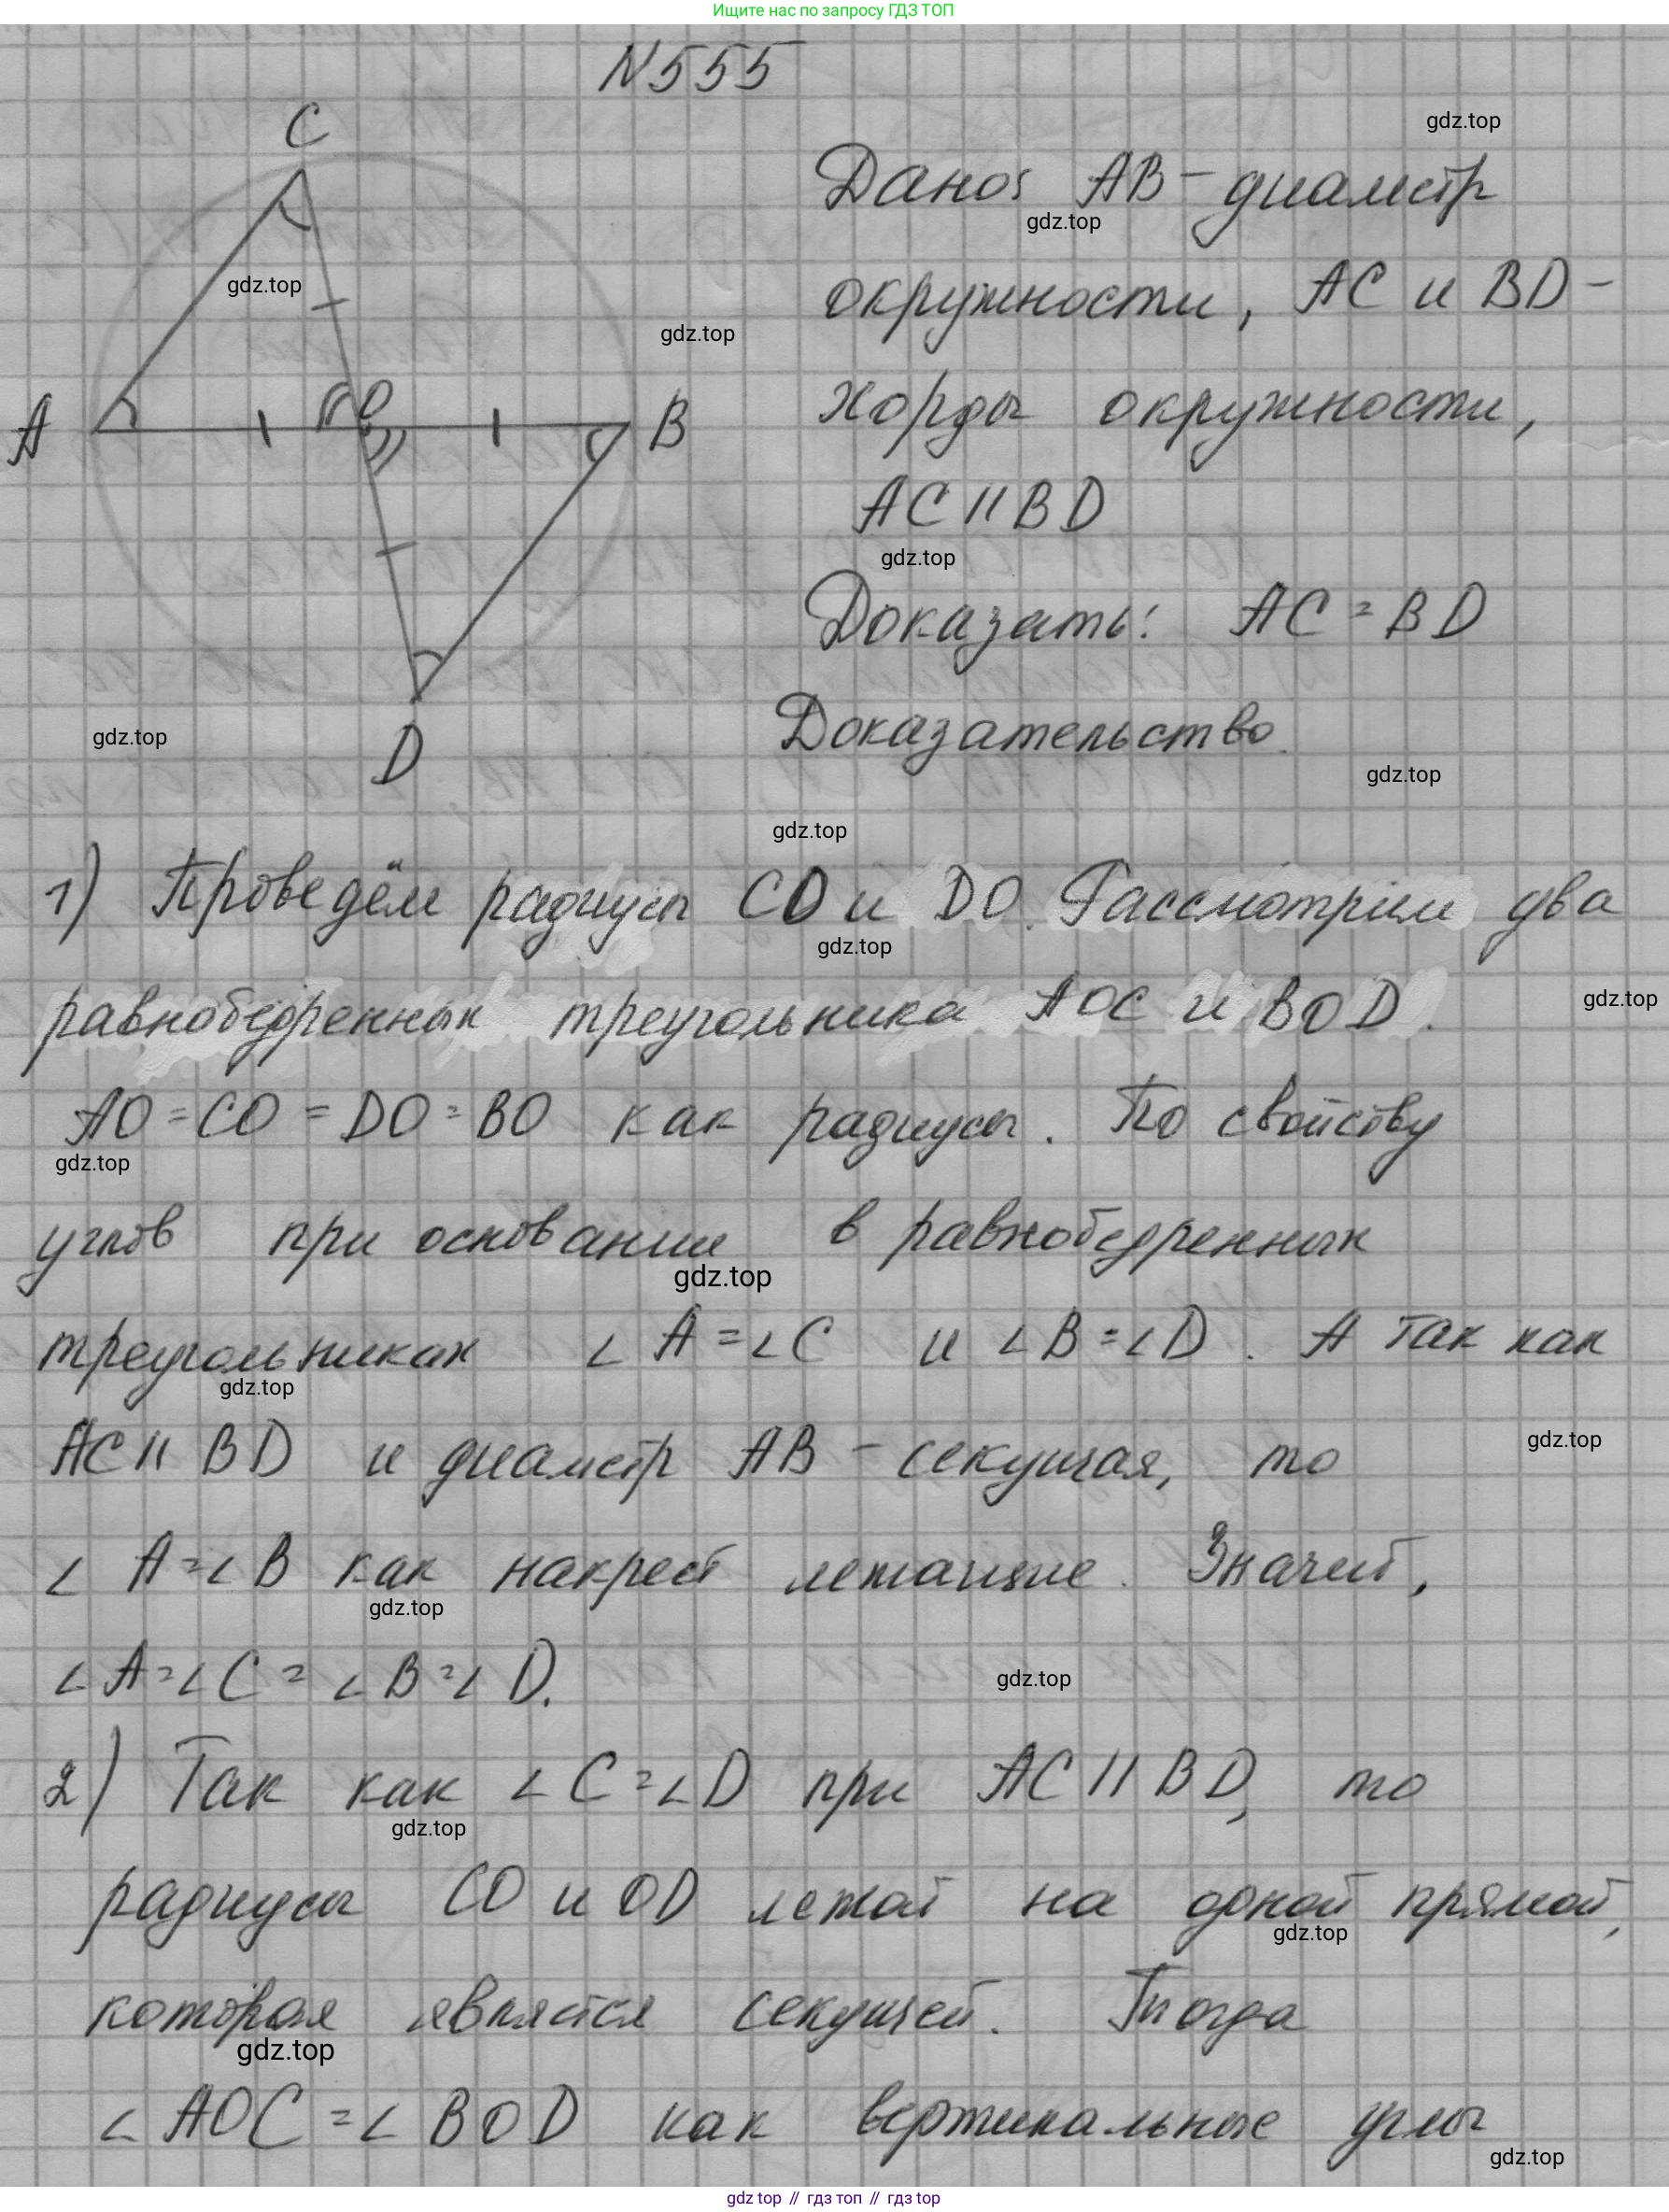 Ищите нас по запросу ГДЗ ТОП
N555
C
gdz.top
Дано: AB - диаметр
gdz.top
gdz.top
окружности, AC и BD -
gdz.top
A
O
B
хорды окружности,
AC || BD
gdz.top
Доказать: AC = BD
gdz.top
D
Доказательство.
gdz.top
gdz.top
1) Проведём радиусы CO и DO. Рассмотрим два
gdz.top
равнобедренных треугольника AOC и BOD.
gdz.top
AO = CO = DO = BO как радиусы. По свойству
gdz.top
углов при основании в равнобедренных
gdz.top
треугольниках ∠ A = ∠ C и ∠ B = ∠ D. А так как
gdz.top
AC || BD и диаметр AB - секущая, то
gdz.top
∠ A = ∠ B как накрест лежащие. Значит,
gdz.top
∠ A = ∠ C = ∠ B = ∠ D.
gdz.top
2) Так как ∠ C = ∠ D при AC || BD, то
gdz.top
радиусы CO и OD лежат на одной прямой,
gdz.top
которая является секущей. Тогда
gdz.top
∠ AOC = ∠ BOD как вертикальные углы
gdz.top
gdz top // гдз топ // гдz top